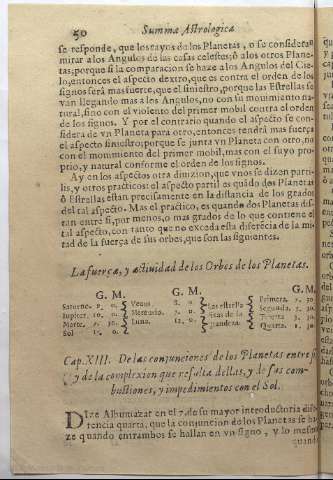 50 Summa Astrologica
se responde, que los rayos de los Planetas, o se consideran
mirar a los Angulos de las casas celestes; ò a los otros Plane-
tas; porque si la comparacion se haze a los Angulos del Cie-
lo, entonces el aspecto dextro, que es contra el orden de los
signos serà mas fuerte, que el sinistro, porque las Estrellas se
van llegando mas a los Angulos, no con su mouimiento na-
tural, sino con el violento del primer mobil contra el orden
de los signos. Y por el contrario quando el aspecto se con-
sidera de vn Planeta para otro, entonces tendrà mas fuerça
el aspecto siniestro; porque se junta vn Planeta con otro, no
con el mouimiento del primer mobil, mas con el suyo pro-
prio, y natural conforme el orden de los signos.
Ay en los aspectos otra diuizion, que vnos se dizen parti-
lis, y otros practicos: el aspecto partil es quãdo dos Planetas
ò Estrellas estan precisamente en la distancia de los grados
del tal aspecto. Mas el practico, es quando dos Planetas dis-
tan entre si, por menos, o mas grados de lo que contiene el
tal aspecto, con tanto que no exceda esta diferẽcia de la mi-
tad de la fuerça de sus orbes, que son las siguientes.
La fuerça, y actiuidad de los Orbes de los Planetas.
G. M. G. M. G. M.
Saturno. 9. 0. Venus. 8. 0. las estrellas Primera. 7. 30.
Iupiter. 12. 0. Mercurio. 7. 0. fixas de la Segunda.
Marte. 7. 30. Luna. 12. 0. grandeza. Tercera
Sol. 0. Quarta.
Cap. XIII. De las conjunciones de los Planetas entre si
y de la complexion que resulta dellas, y de sus com-
bustiones, y impedimientos con el Sol.
DIze Albumazar en el 7. de su mayor introductoria dife-
rencia quarta, que la conjuncion de los Planetas se ha-
ze quando entrambos se hallan en vn signo, y lo mesmo
quando